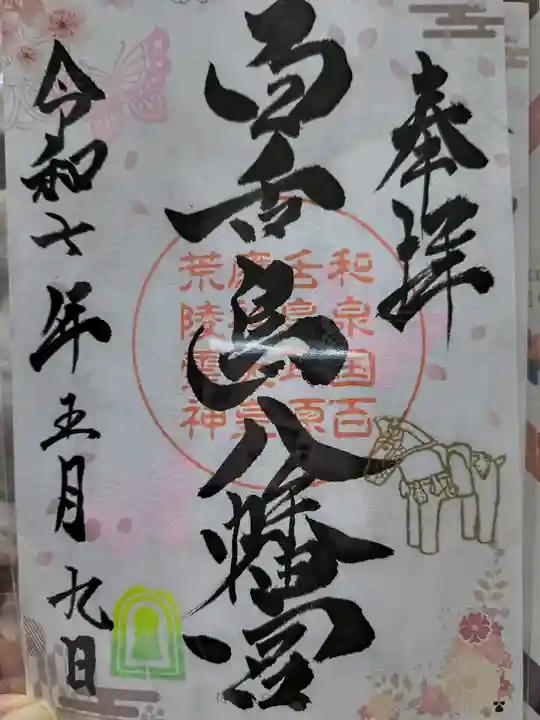 奉拝
百舌鳥八幡宮
和泉国百
舌鳥
荒陵
神
令和七年五月九日